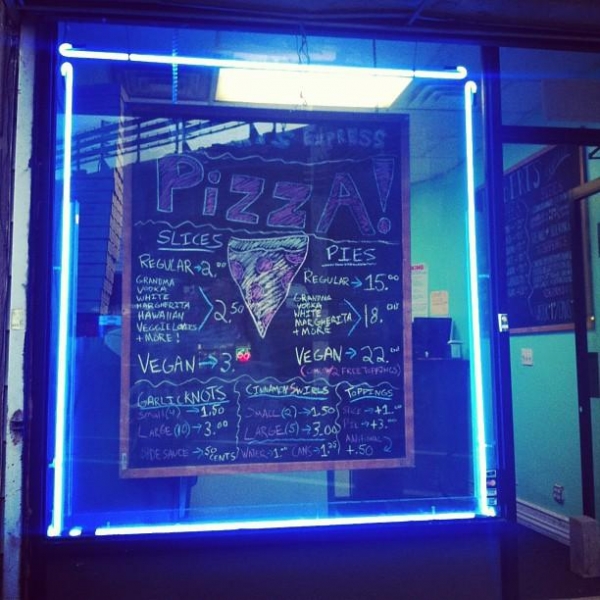 EXPRESS
PiZZA!
SLICES
REGULAR → 2.00
GRANDMA
VODKA
WHITE
MARGHERITA
HAWAIIAN
VEGGIE LOVERS
+ MORE!
2.50
VEGAN → 3.00
PIES
REGULAR → 15.00
GRANDMA
VODKA
WHITE
MARGHERITA
+ MORE
18.00
VEGAN → 22.00
2 FREE TOPPINGS)
GARLIC KNOTS
SMALL (4) → 1.50
LARGE (10) → 3.00
SIDE SAUCE → 50 CENTS
CINNAMIN SWIRLS
SMALL (2) → 1.50
LARGE (5) → 3.00
WATER → 1.00 CANS → 1.25
TOPPINGS
SLICE → +1.00
PIE → +3.00
ADDITIONAL
+.50